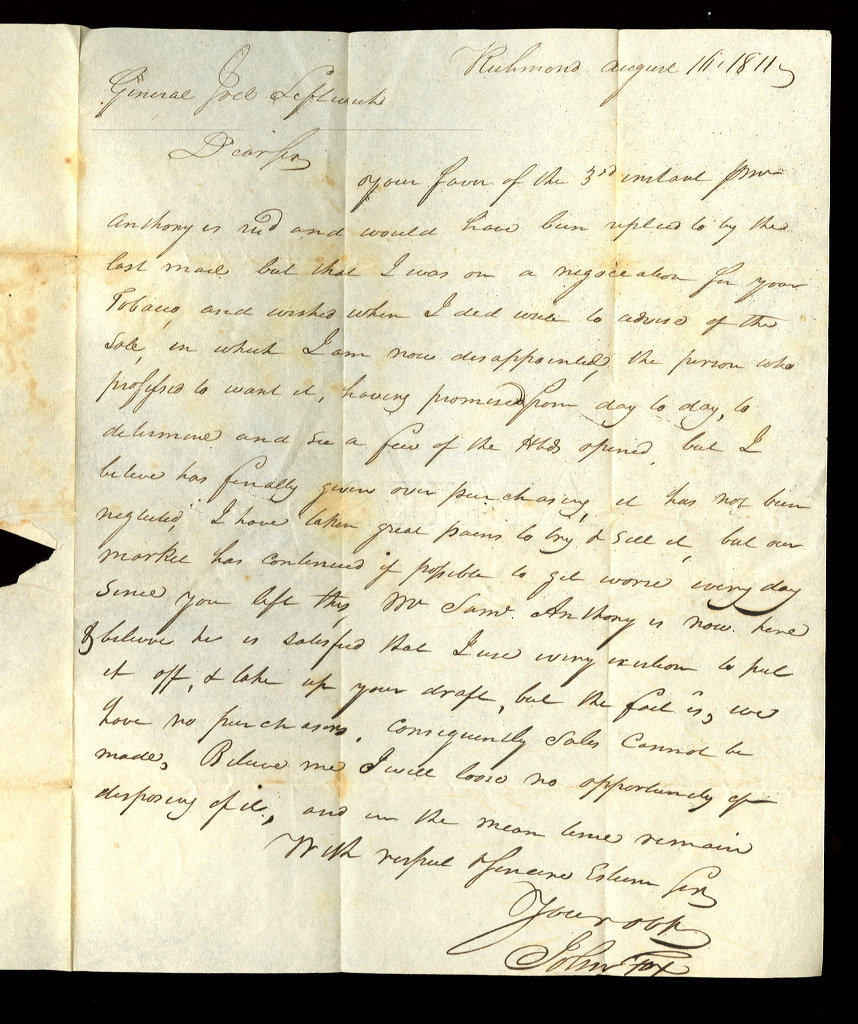 Richmond august 16. 1811
General Joel Leftwich
Dear Sir
your favor of the 3rd instant pr Mr
Anthony is recd and would have been replied to by the
last mail but that I was on a negociation for your
Tobacco, and wished when I did write to advise of the
Sale, in which I am now disappointed, the person who
professed to want it, having promised from day to day, to
determine and see a few of the Hhds opened, but I
believe has finally given over purchasing, it has not been
neglected, I have taken great pains to try & sell it, but our
market has continued if possible to get worse every day
since you left this, Mr Saml. Anthony is now here
& believe he is satisfied that I use every exertion to put
it off, & take up your draft, but the fact is, we
have no purchasers, consequently Sales Cannot be
made, Believe me I will loose no opportunity of
disposing of it, and in the mean time remain
With respect & Sincere Esteem Sir
Your ob
John Fox